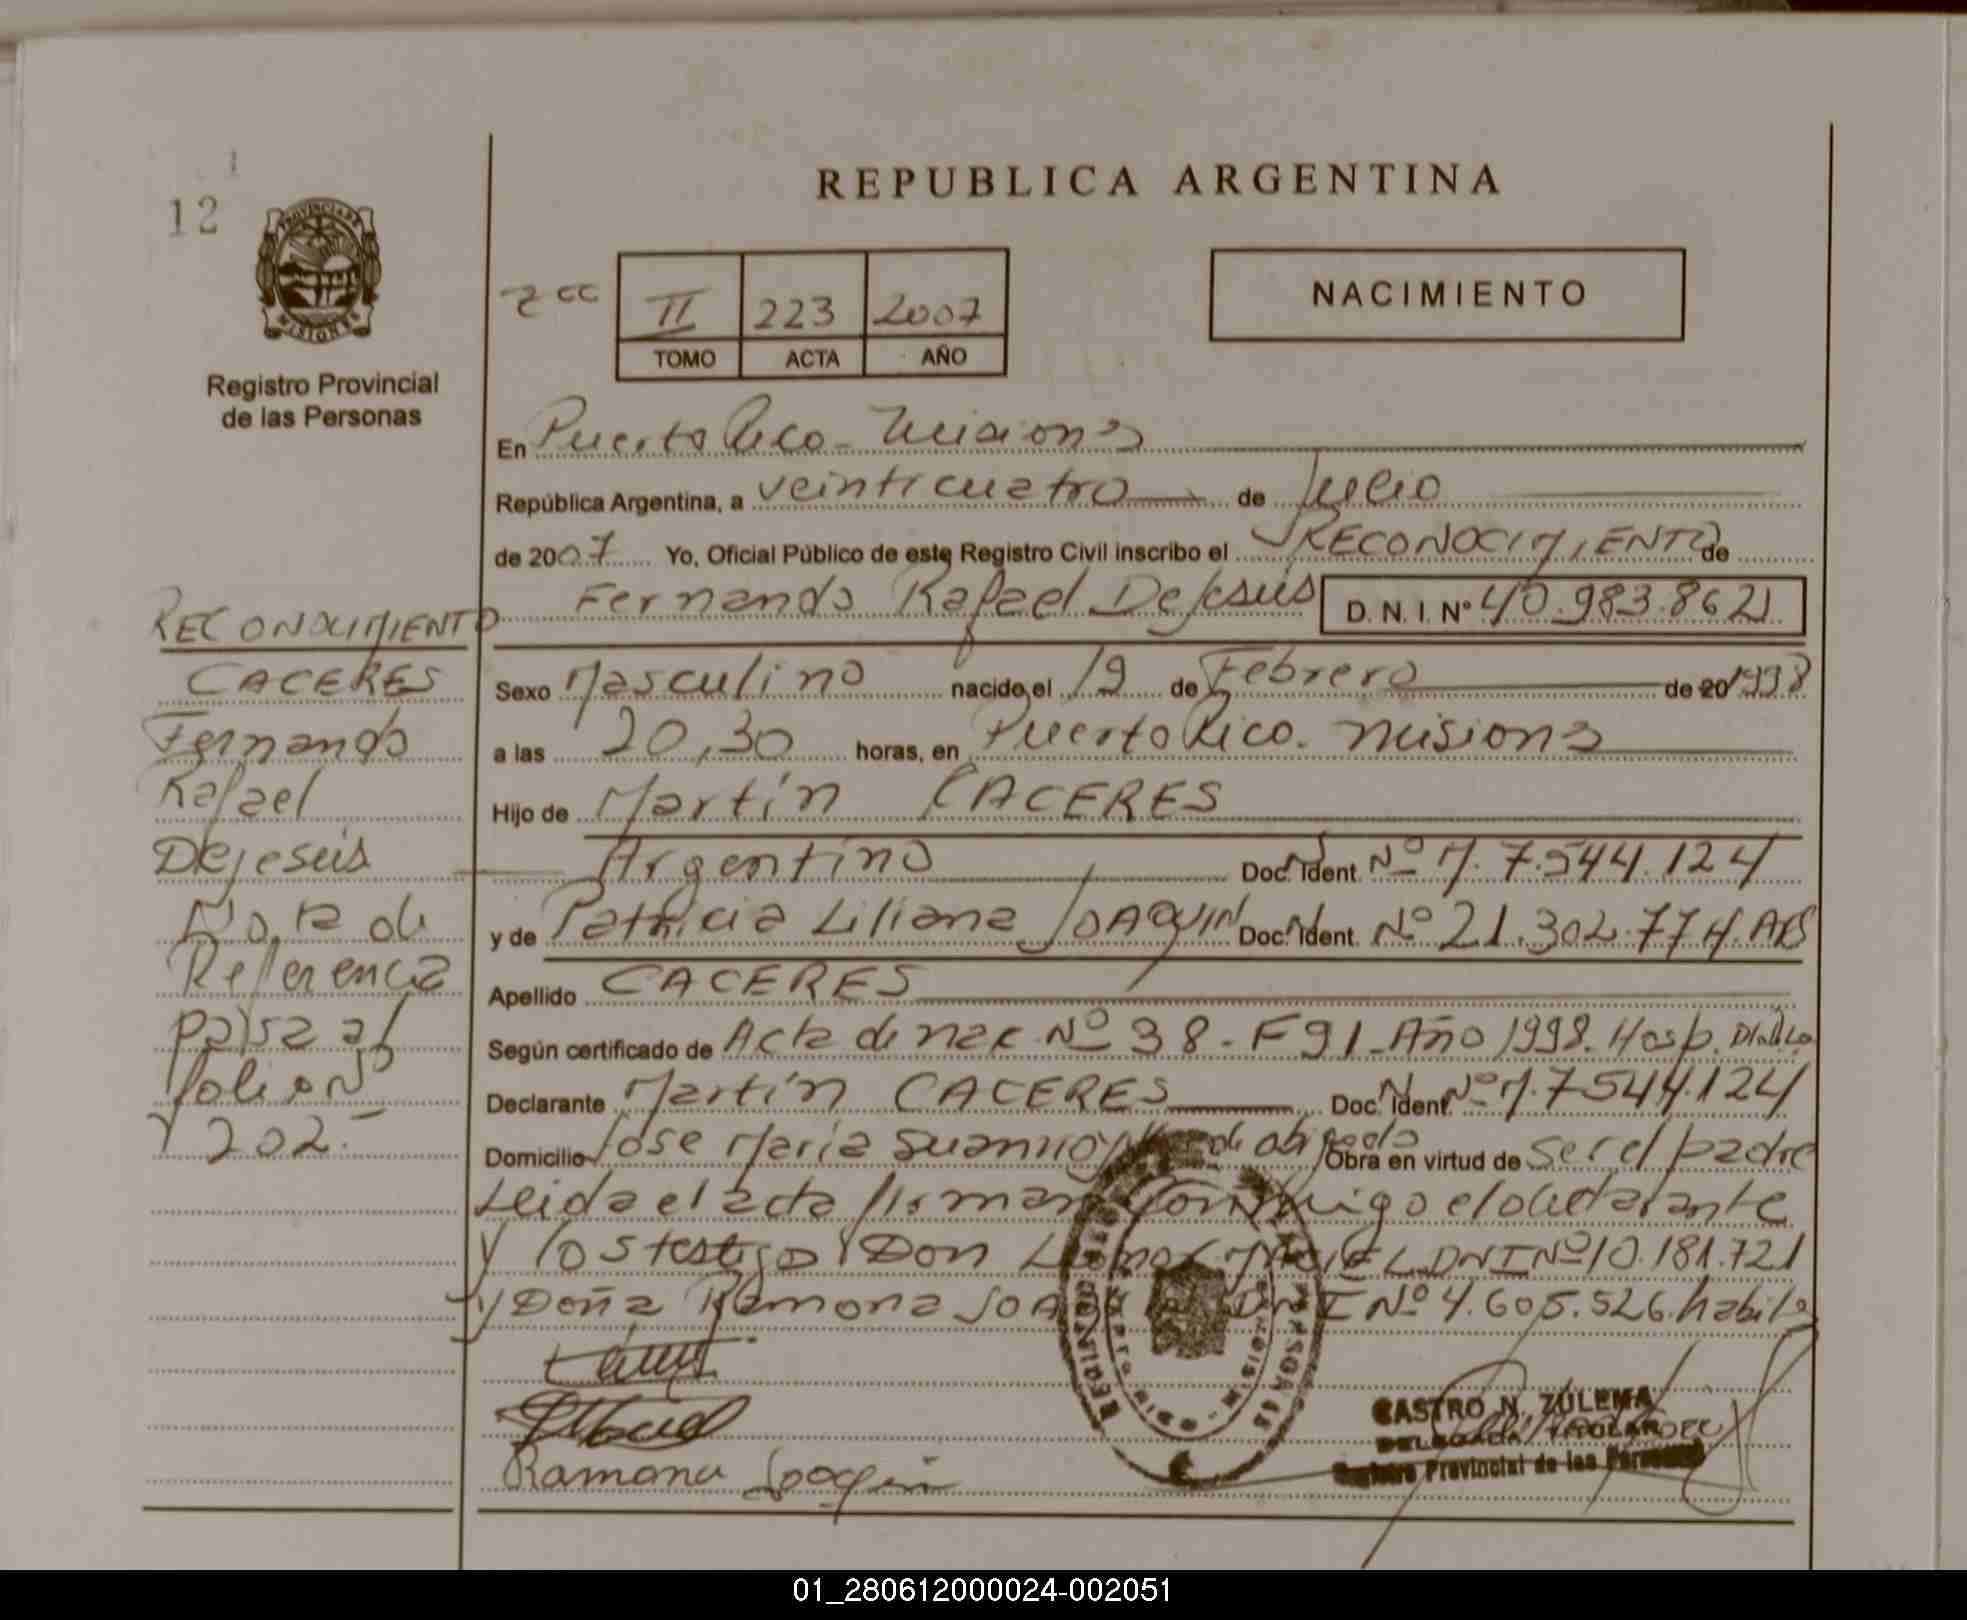 12
PROVINCIA DE
MISIONES
Registro Provincial
de las Personas
REPUBLICA ARGENTINA
II 223 2007
TOMO ACTA AÑO
NACIMIENTO
En Puerto Rico - Misiones
República Argentina, a veinticuatro de Julio
de 2007 Yo, Oficial Público de este Registro Civil inscribo el RECONOCIMIENTO de
Fernando Rafael DeJesús D. N. I. Nº 40.983.862
Sexo Masculino nacido el 19 de Febrero de 20 1998
a las 20,30 horas, en Puerto Rico. Misiones
Hijo de Martín CACERES
Argentino Doc. Ident. Nº M. 7.544.124
y de Patricia Liliana JOAQUIN Doc. Ident. Nº 21.302.774. ARG
Apellido CACERES
Según certificado de Acta de nac. Nº 38 - F 91 - Año 1998. Hosp.
Declarante Martín CACERES Doc. Ident. Nº M. 7.544.124
Domicilio Jose Maria Obra en virtud de ser el padre
Leida el acta firman conmigo el declarante
y los testigos Don MACIEL DNI Nº 10.181.721
y Doña Ramona JOAQUIN DNI Nº 4.605.526. habiles
Ramona Joaquin
CASTRO N. ZULEMA
DELEGADA TITULAR
Registro Provincial de las Personas
RECONOCIMIENTO
CACERES
Fernando
Rafael
DeJesús
Nota de
Referencia
pasa al
folio Nº
202.-
01_280612000024-002051